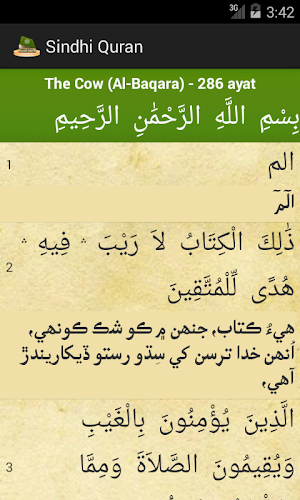 3G 3:42
Sindhi Quran
The Cow (Al-Baqara) - 286 ayat
بِسْمِ اللَّهِ الرَّحْمَٰنِ الرَّحِيمِ
1 الم
الٓمٓ
ذَٰلِكَ الْكِتَابُ لَا رَيْبَ ۛ فِيهِ ۛ
2 هُدًى لِّلْمُتَّقِينَ
هيءُ ڪتاب، جنھن ۾ ڪو شڪ ڪونھي،
اُنھن خدا ترسن کي سِڌو رستو ڏيکاريندڙ
آھي،
الَّذِينَ يُؤْمِنُونَ بِالْغَيْبِ
3 وَيُقِيمُونَ الصَّلَاةَ وَمِمَّا